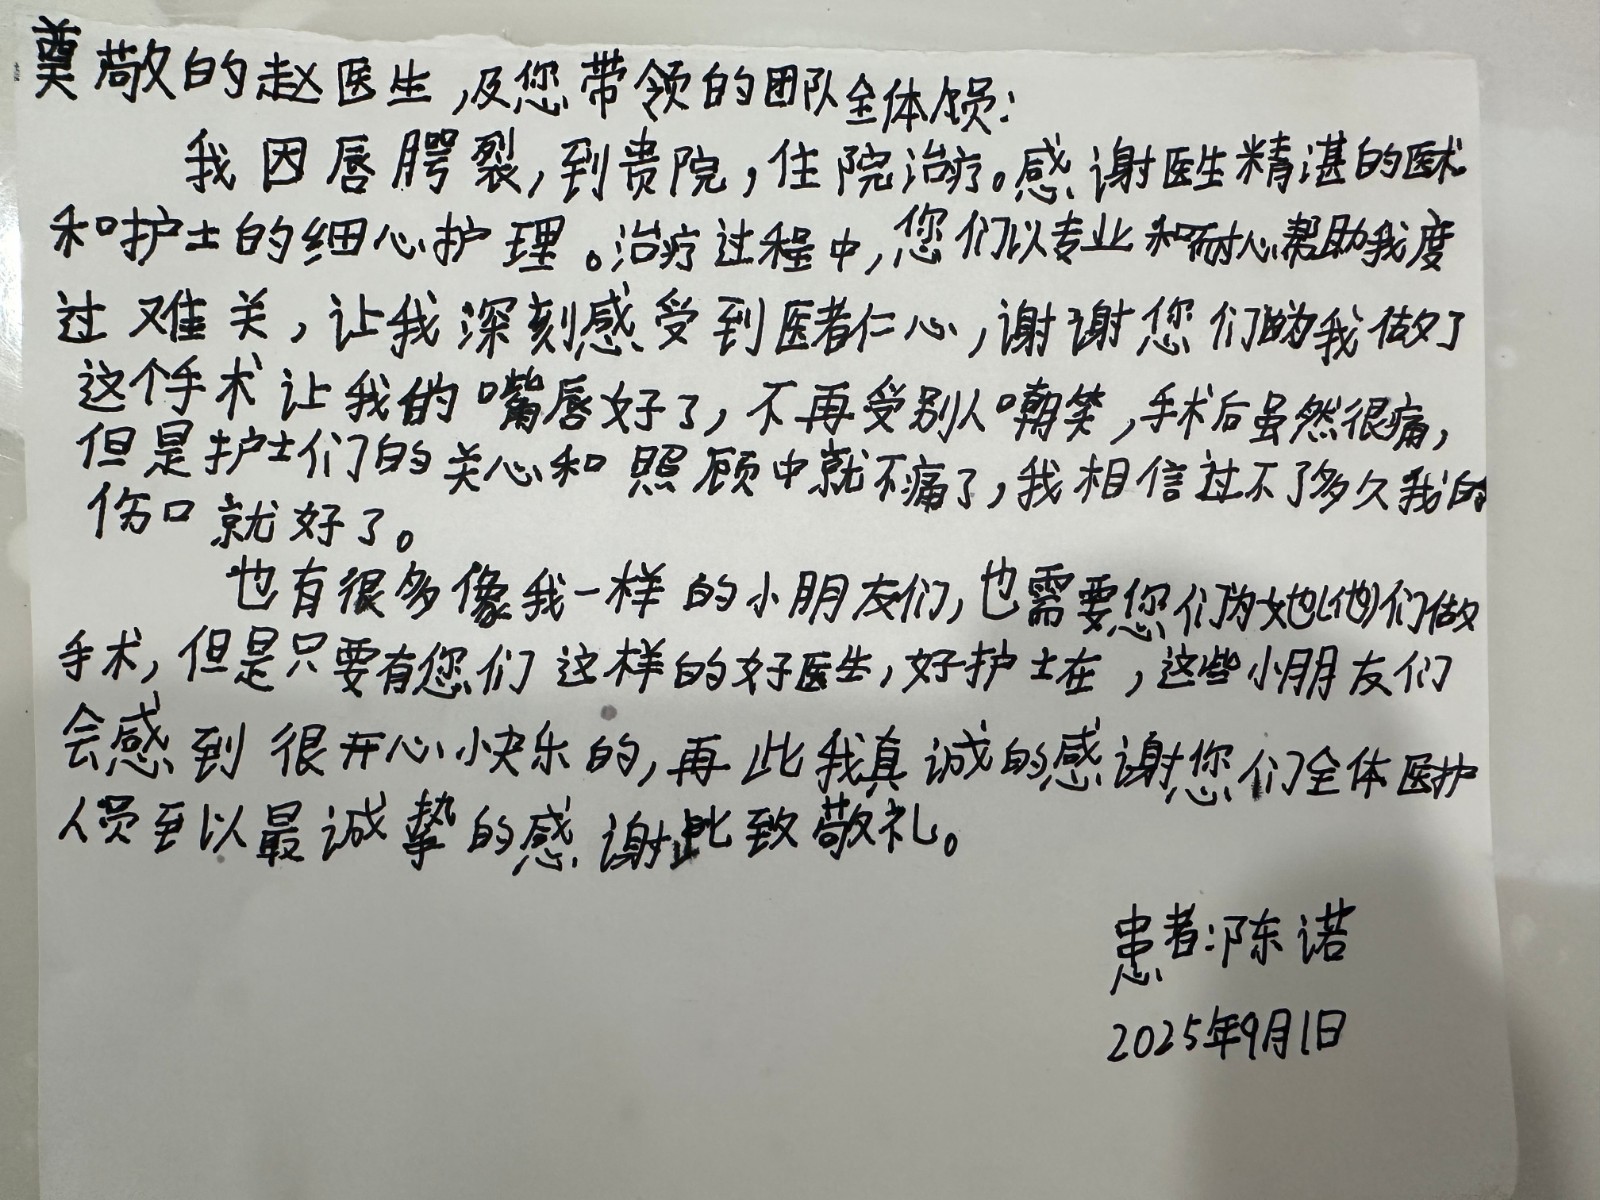 尊敬的赵医生,及您带领的团队全体成员:
我因唇腭裂,到贵院,住院治疗。感谢医生精湛的医术
和护士的细心护理。治疗过程中,您们以专业和耐心帮助我度
过难关,让我深刻感受到医者仁心,谢谢您们为我做了
这个手术让我的嘴唇好了,不再受别人嘲笑,手术后虽然很痛,
但是护士们的关心和照顾中就不痛了,我相信过不了多久我的
伤口就好了。
也有很多像我一样的小朋友们,也需要您们为她(他)们做
手术,但是只要有您们这样的好医生,好护士在,这些小朋友们
会感到很开心快乐的,再此我真诚的感谢您们全体医护
人员至以最诚挚的感谢此致敬礼。
患者:陈诺
2025年9月1日